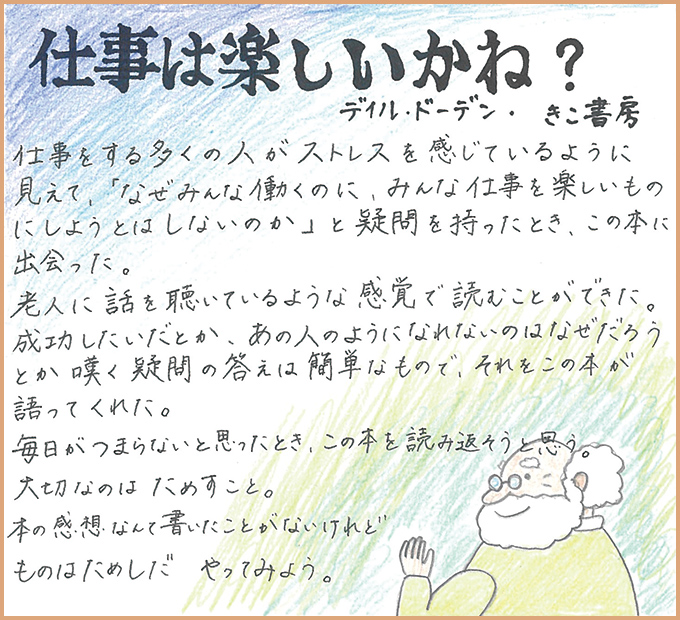 仕事は楽しいかね？
デイル・ドーデン. きこ書房
仕事をする多くの人がストレスを感じているように
見えて、「なぜみんな働くのに、みんな仕事を楽しいもの
にしようとはしないのか」と疑問を持ったとき、この本に
出会った。
老人に話を聴いているような感覚で読むことができた。
成功したいだとか、あの人のようになれないのはなぜだろう
とか嘆く疑問の答えは簡単なもので、それをこの本が
語ってくれた。
毎日がつまらないと思ったとき、この本を読み返そうと思う。
大切なのは ためすこと。
本の感想なんて書いたことがないけれど
ものはためしだ やってみよう。